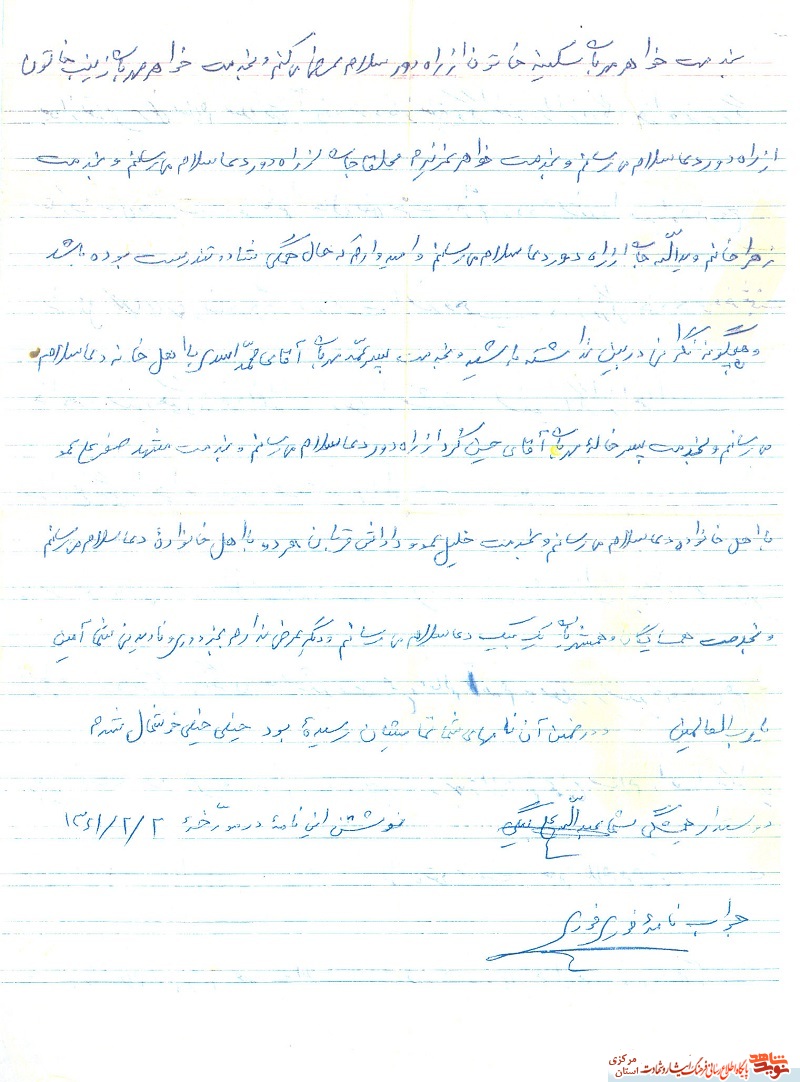 بخدمت خواهر مهربانم سکینه خاتون از راه دور سلام عرض می کنم و بخدمت خواهر مهربانم زینب خاتون
از راه دور دعا سلام می رسانم و بخدمت خواهر عزیزم جان از راه دور دعا سلام می رسانم و بخدمت
زهرا خانم و یداللّه جان از راه دور دعا سلام می رسانم و امیدوارم که حال همگی شما تندرست بوده باشد
و هیچگونه نگرانی در بین نداشته باشید و بخدمت پسر عمه مهربانم آقای محمّد اسدی با اهل خانه دعا سلام
می رسانم و بخدمت پسر خالۀ مهربانم آقای حسین از راه دور دعا سلام می رسانم و بخدمت مشهد صفرعلی عمو
با اهل خانواده دعا سلام می رسانم و بخدمت خلیل عمو و داداش قربان هر دو با اهل خانوادۀ دعا سلام می رسانم
و بخدمت همسایگان و همشهریان یک بیک دعا سلام می رسانم و دیگر عرض ندارم بجز دوری و نادیدنی شما آمین
یا رب العالمین و در ضمن آن نامهای شما رسیدۀ بود خیلی خیلی خوشحال شدم
دوستدار همیشگی شما عبداللّه علی بیگی نوشتن این نامۀ در مورّخۀ ۱۳۶۱/۲/۲
جواب نامۀ فوری فوری
نوید شاهد پایگاه اطلاع رسانی فرهنگ ایثار و شهادت استان مرکزی